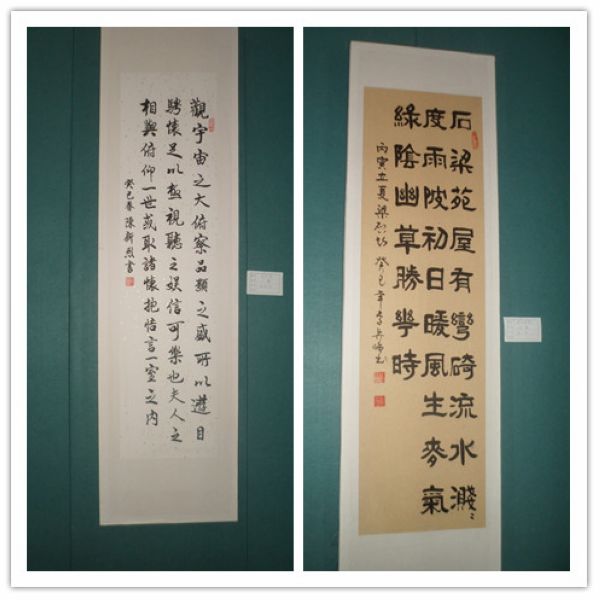 觀宇宙之大俯察品類之盛所以遊目
騁懷足以極視聽之娱信可樂也夫人之
相與俯仰一世或取諸懷抱悟言一室之内
癸巳春陳新烈書
石梁苑屋有彎碕流水濺〻
度雨陂初日暖風生麥氣
綠陰幽草勝華時
丙寅立夏梁啟超 癸巳年